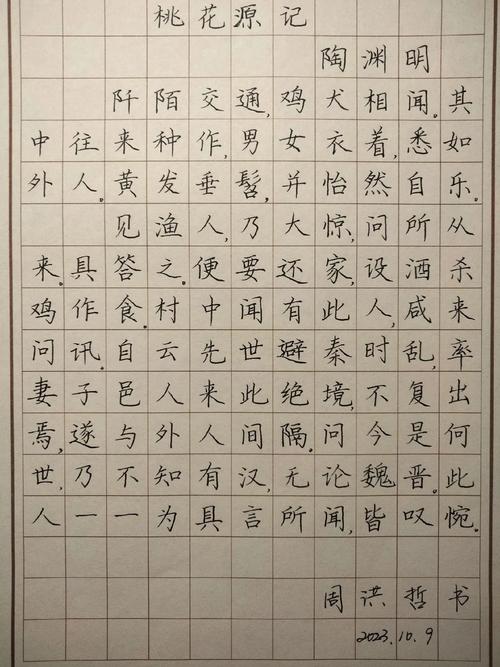 桃花源记
陶渊明
阡陌交通,鸡犬相闻。其
中往来种作,男女衣着,悉如
外人。黄发垂髫,并怡然自乐。
见渔人,乃大惊,问所从
来。具答之。便要还家,设酒杀
鸡作食。村中闻有此人,咸来
问讯。自云先世避秦时乱,率
妻子邑人来此绝境,不复出
焉,遂与外人间隔。问今是何
世,乃不知有汉,无论魏晋。此
人一一为具言所闻,皆叹惋。
周洪哲书
2023.10.9